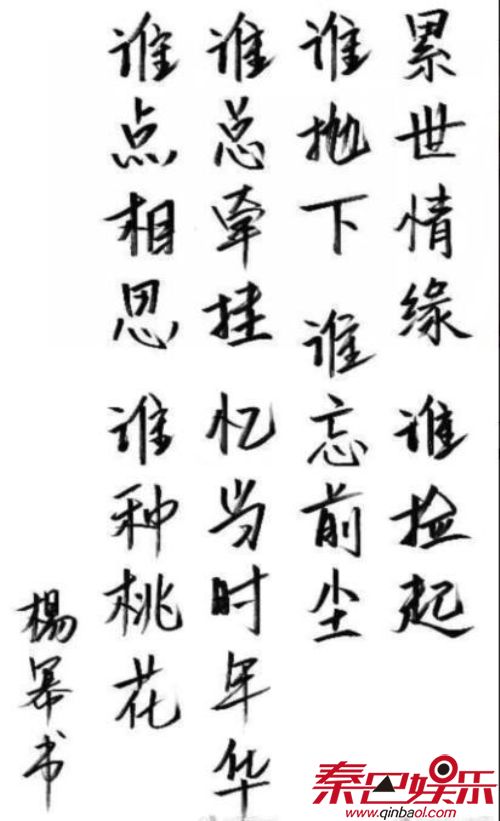 累世情缘 谁捡起
谁抛下 谁忘前尘
谁总牵挂 忆当时年华
谁点相思 谁种桃花
杨幂书
秦巴娱乐
www.qinbaol.com